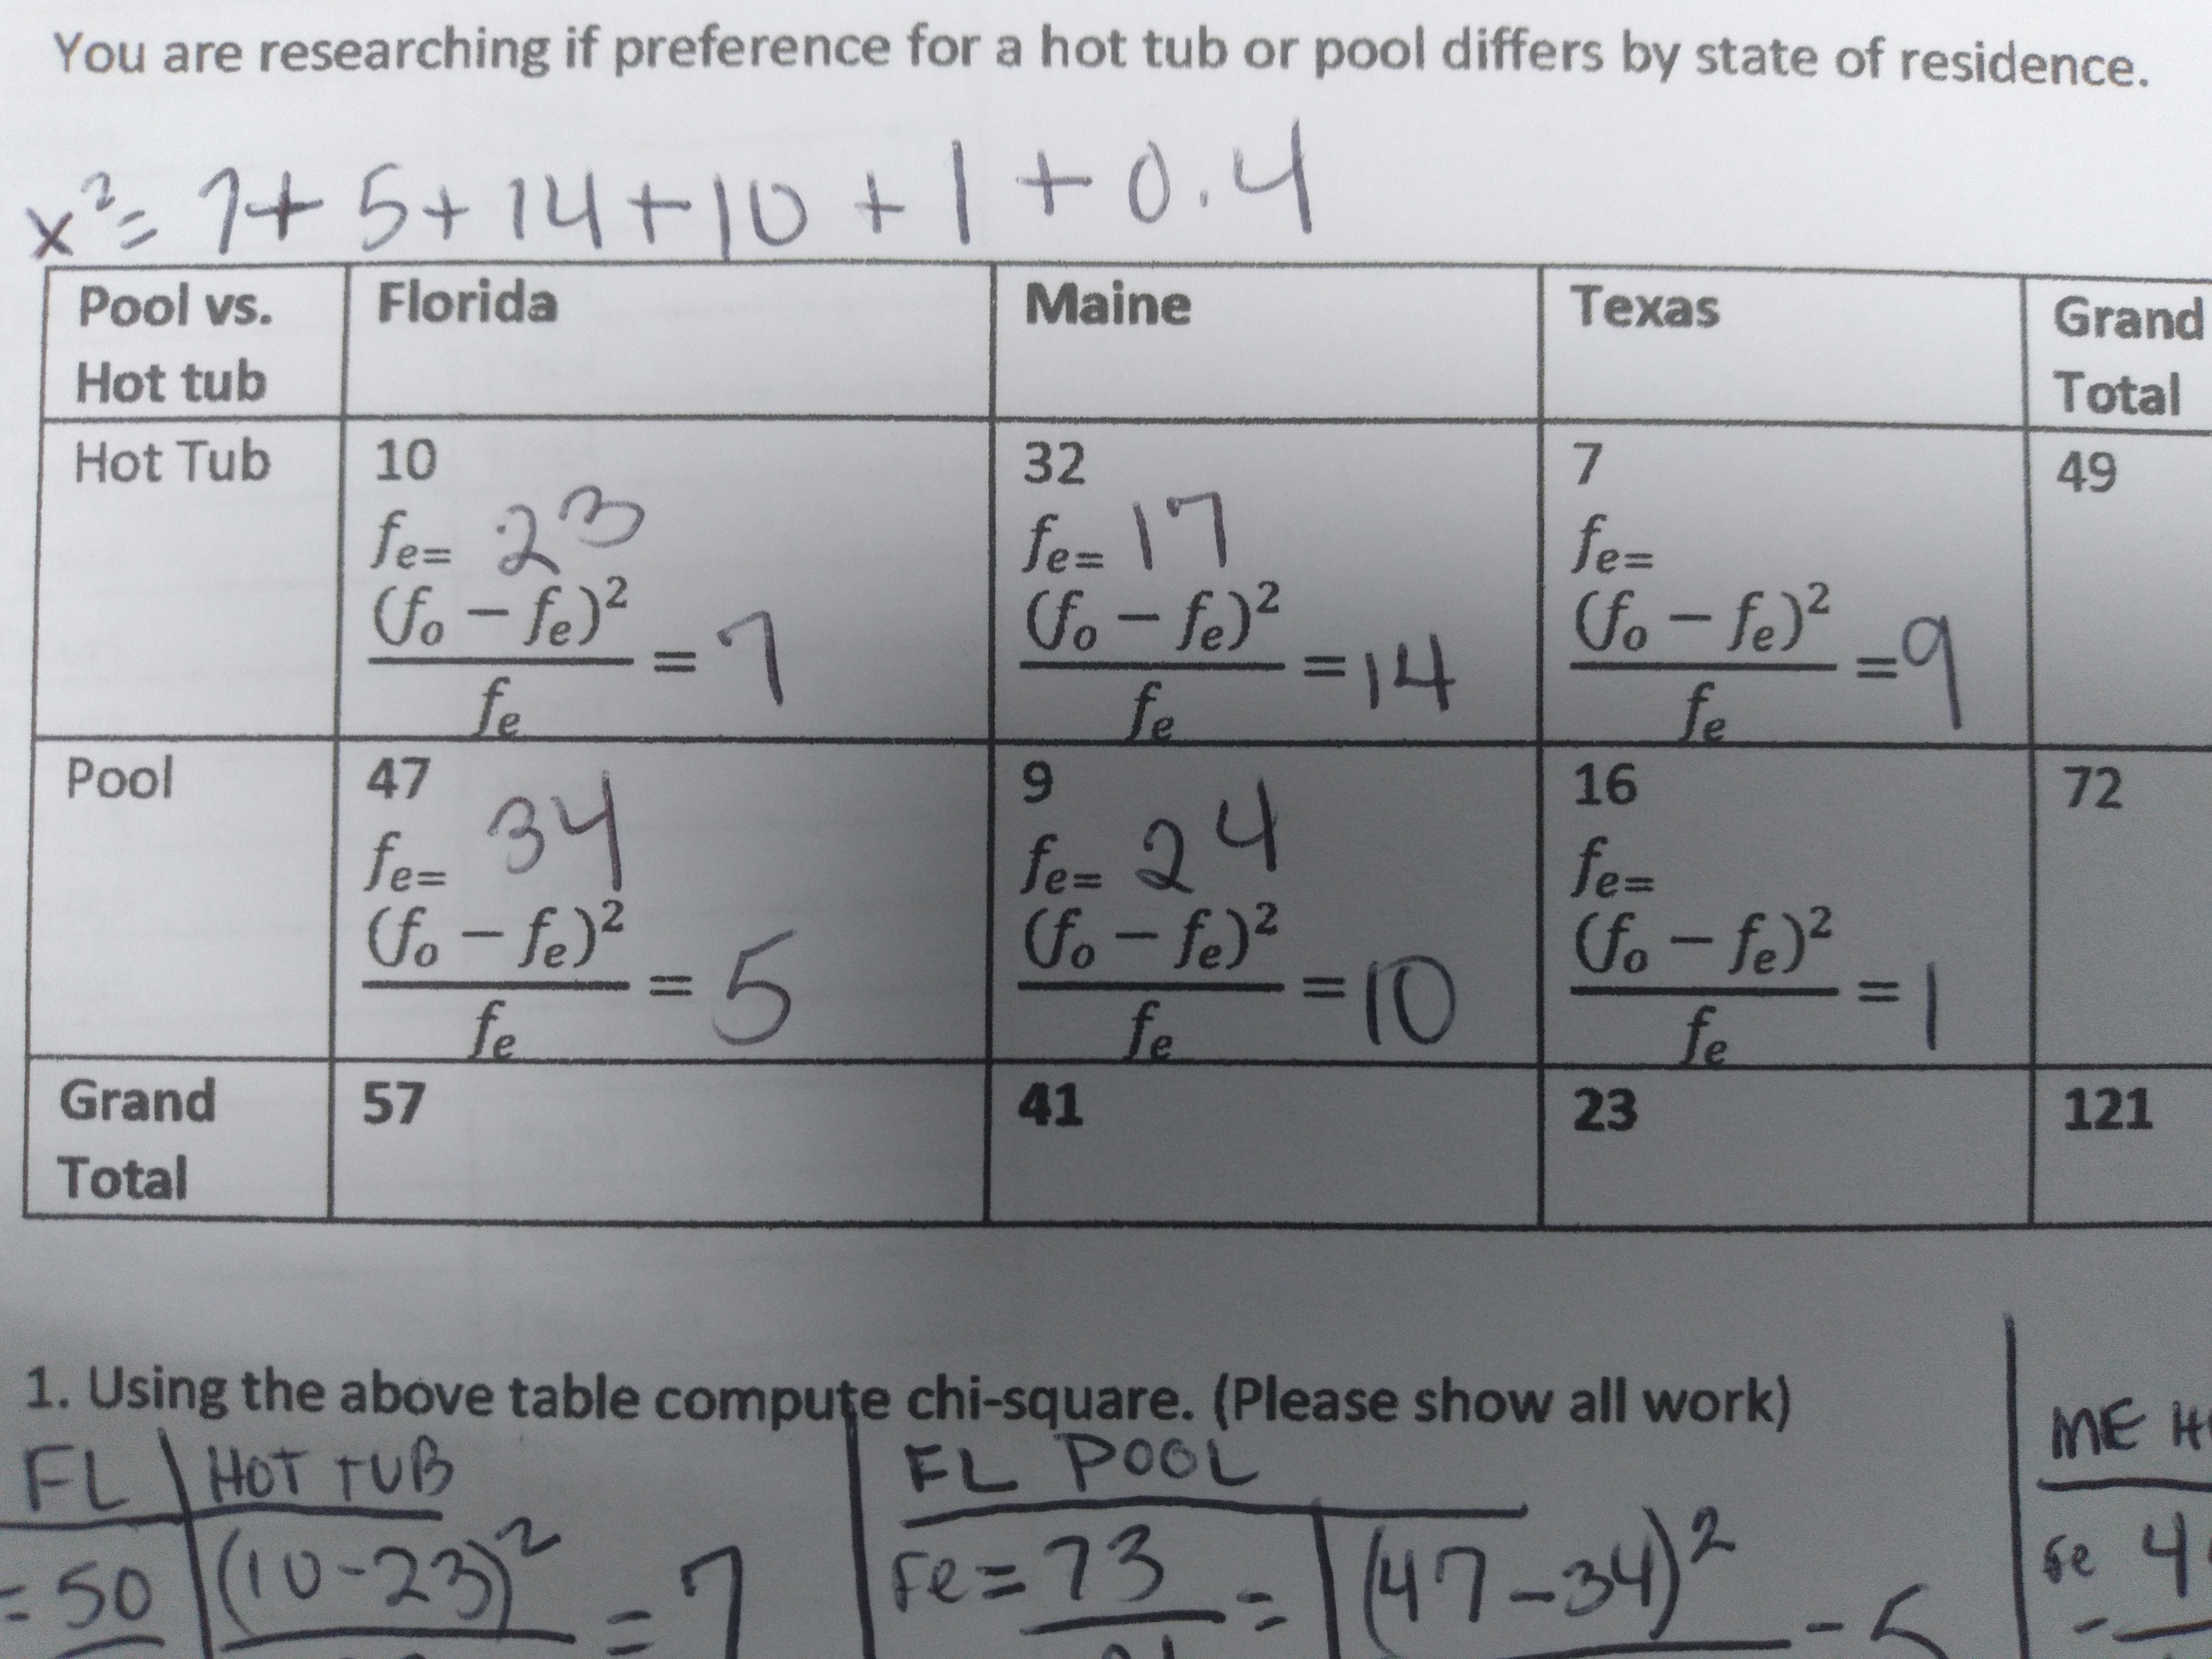 You are researching if preference for a hot tub or pool differs by state of residence.
x²= 7+ 5+ 14+ 10 + 1 + 0.4
Pool vs. Hot tub | Florida | Maine | Texas | Grand Total
Hot Tub | 10 | 32 | 7 | 49
fe= 23 | fe= 17 | fe=
(fo − fe)² / fe = 7 | (fo − fe)² / fe = 14 | (fo − fe)² / fe = 9
Pool | 47 | 9 | 16 | 72
fe= 34 | fe= 24 | fe=
(fo − fe)² / fe = 5 | (fo − fe)² / fe = 10 | (fo − fe)² / fe = 1
Grand Total | 57 | 41 | 23 | 121
1. Using the above table compute chi-square. (Please show all work)
FL | HOT TUB | FL POOL | ME
= 50 | (10-23)² = 7 | Fe = 73 = | (47-34)² - 5 | Fe 4